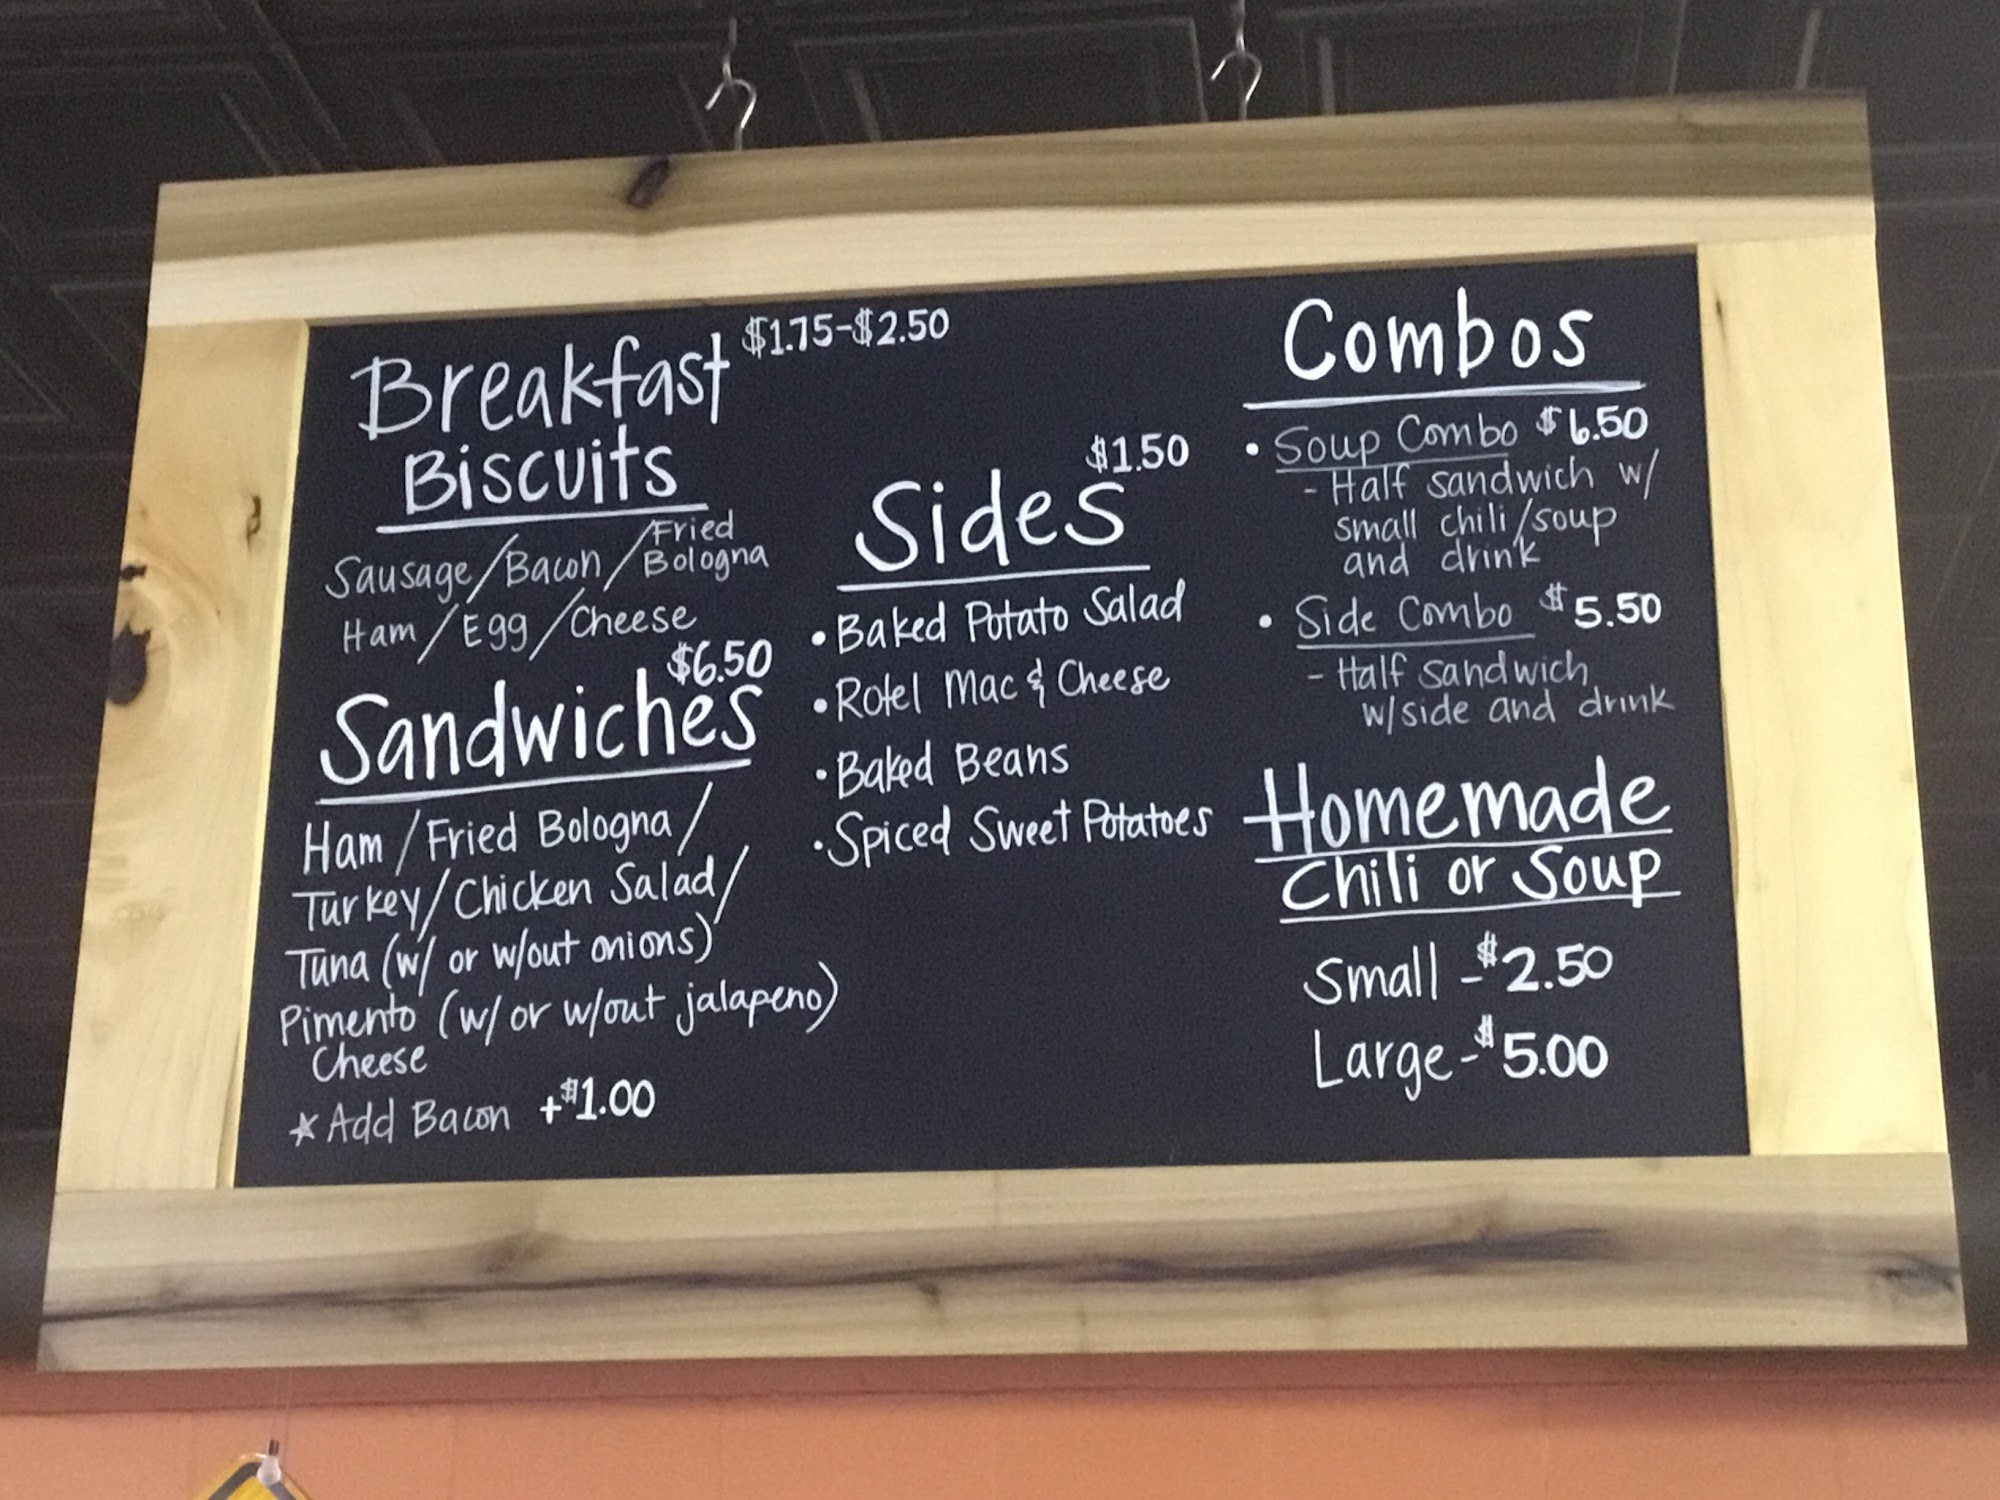 Breakfast $1.75-$2.50
Biscuits
Sausage/Bacon/Fried Bologna
Ham/Egg/Cheese
Sandwiches $6.50
Ham/Fried Bologna/
Turkey/Chicken Salad/
Tuna (w/ or w/out onions)
Pimento (w/ or w/out jalapeno)
Cheese
☆ Add Bacon +$1.00
Sides $1.50
• Baked Potato Salad
• Rotel Mac & Cheese
• Baked Beans
• Spiced Sweet Potatoes
Combos
• Soup Combo $6.50
- Half sandwich w/
small chili/soup
and drink
• Side Combo $5.50
- Half sandwich
w/side and drink
Homemade
Chili or Soup
Small - $2.50
Large - $5.00